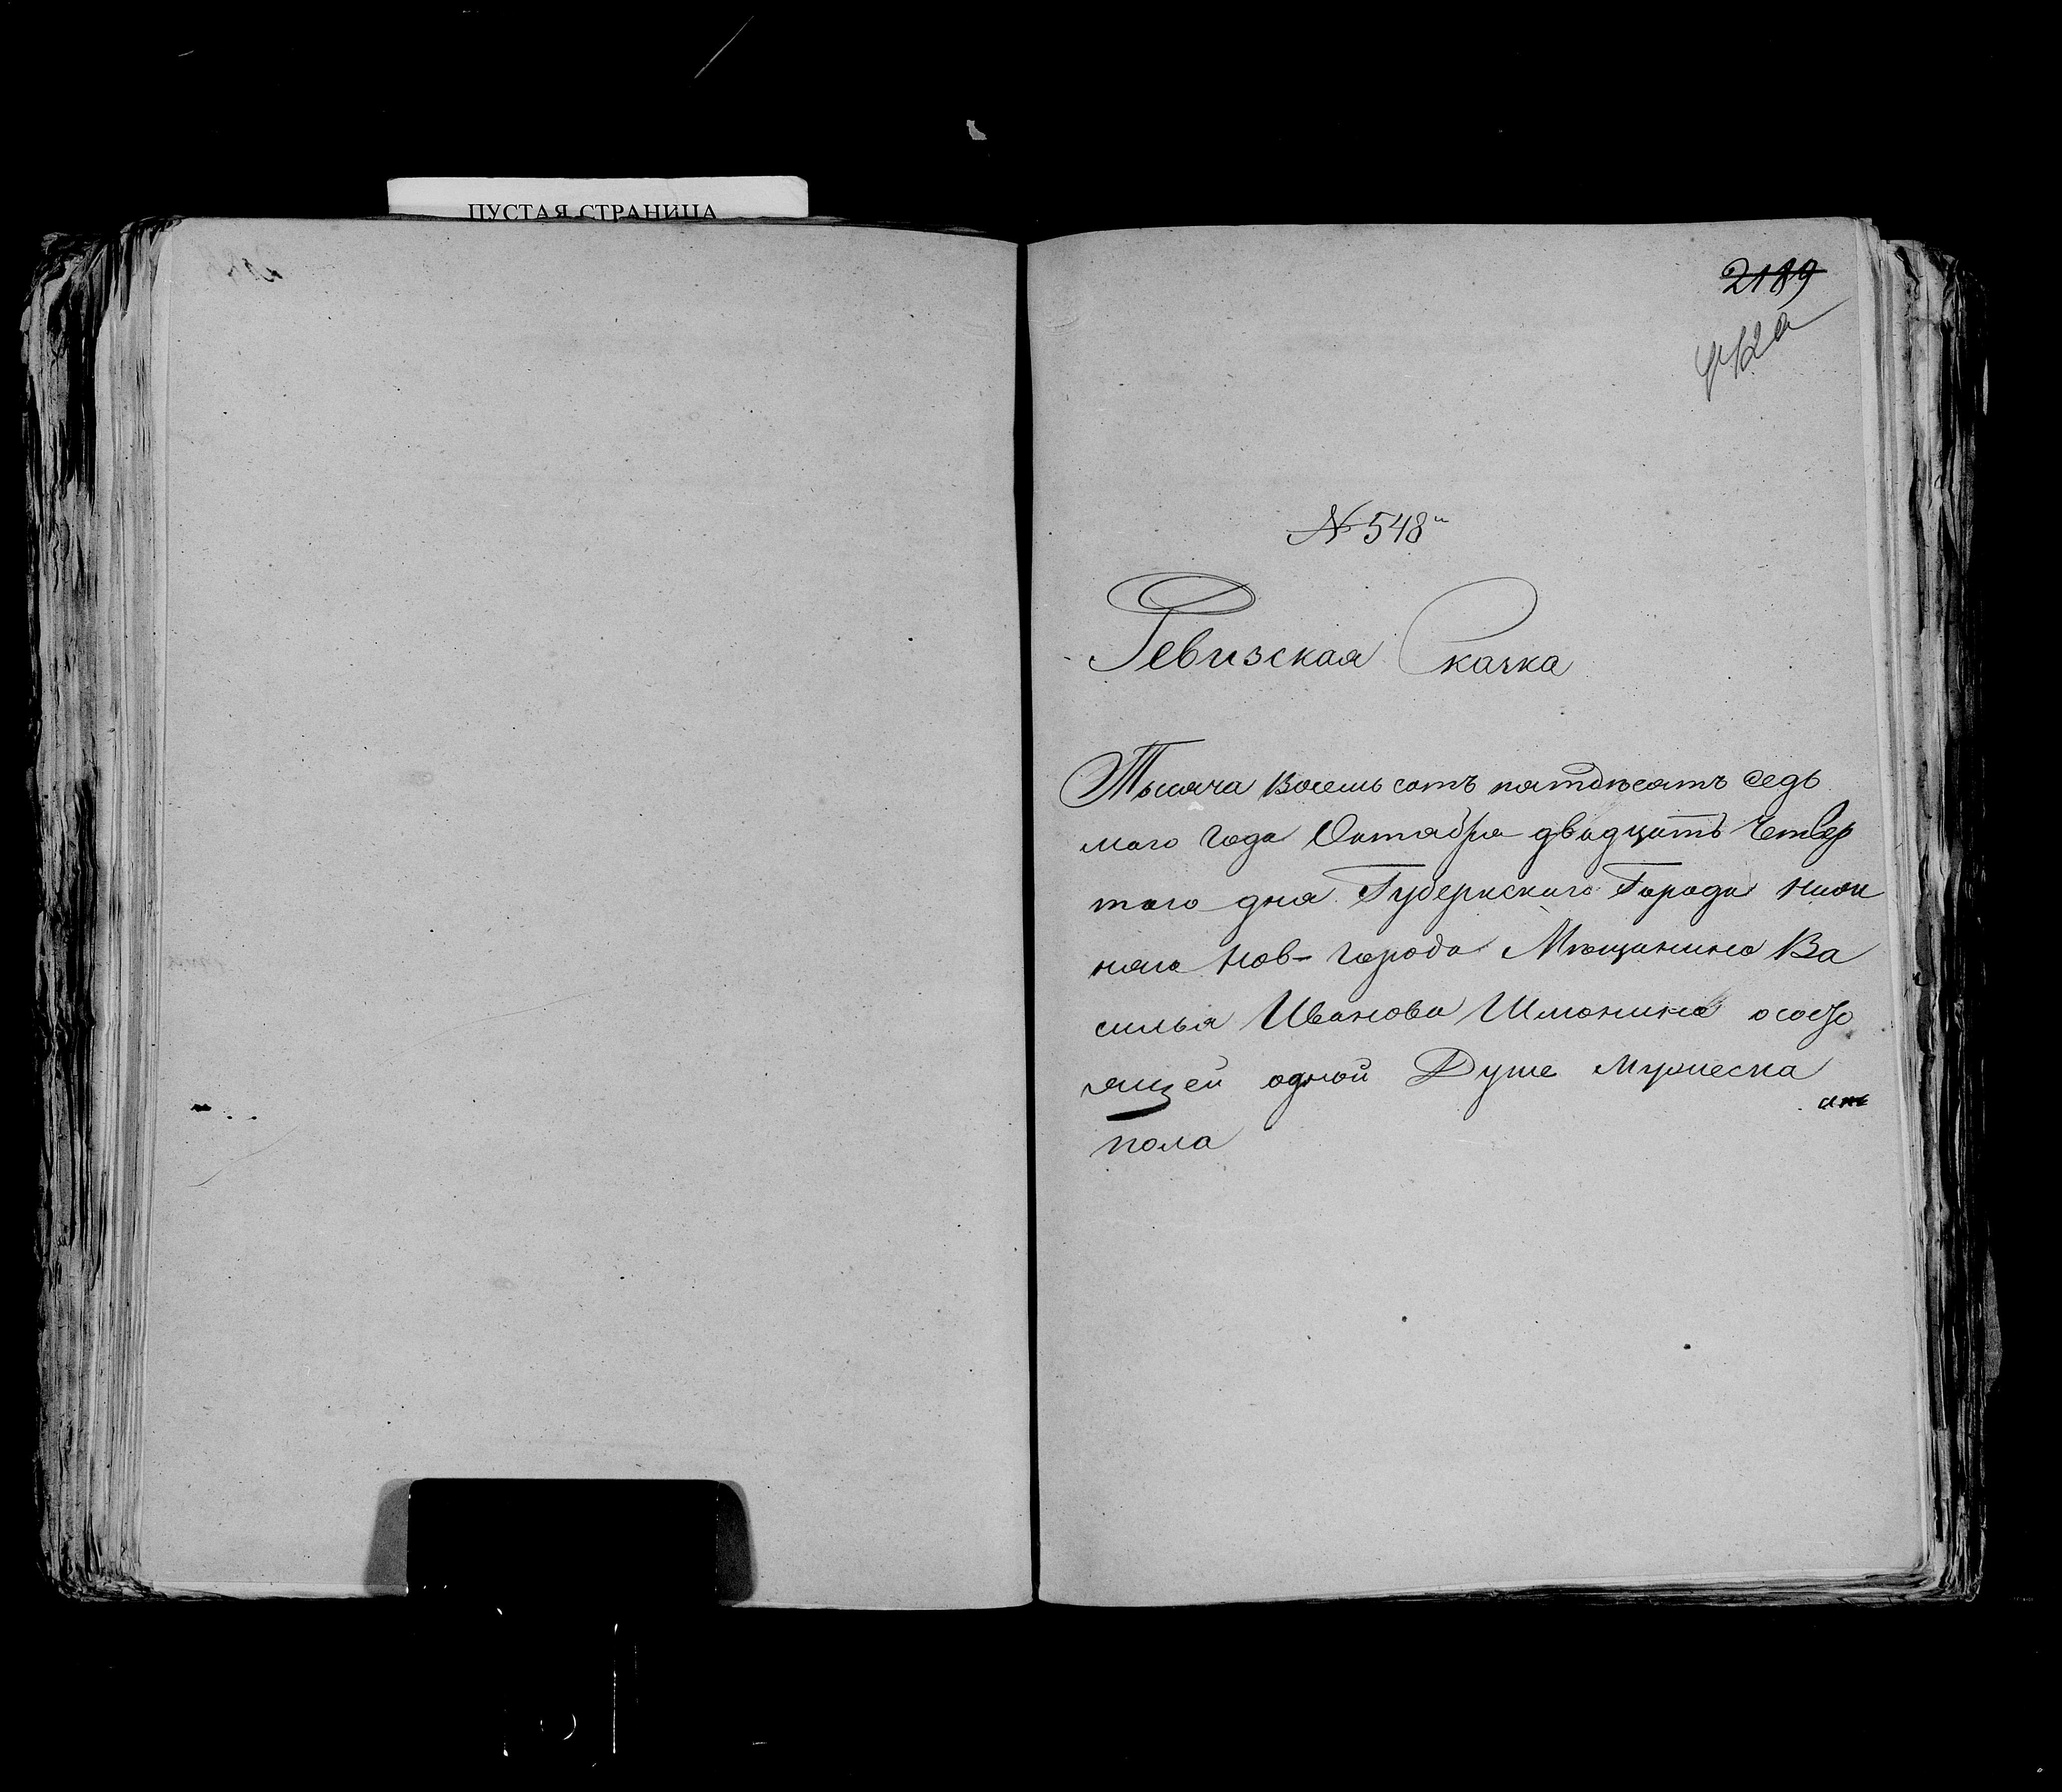 ПУСТАЯ СТРАНИЦА
2189
№ 548й
Ревизская Скачка
Тысяча восемь сотъ пятдѣсятъ седь
маго года Октября двадцать Четвер
таго дня Губернскаго Города Ниж
няго Нов- города Мѣщанина Ва
силья Иванова Шмонина о собо
ящей одной Душе Мужеска
пола